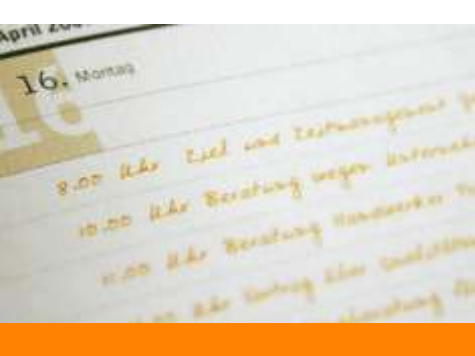 April
16. Montag
8.00 Uhr Ziel und Zeitmanagement
10.00 Uhr Beratung wegen
11.00 Uhr Beratung Handwerker
.00 Uhr Vortrag über